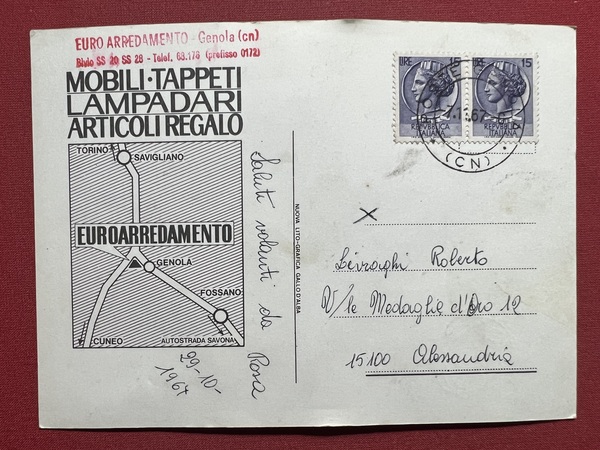 EURO ARREDAMENTO - Genola (cn)
Bivio SS 20 SS 28 - Telef. 68.178 (prefisso 0172)
MOBILI·TAPPETI
LAMPADARI
ARTICOLI REGALO
TORINO
SAVIGLIANO
EUROARREDAMENTO
GENOLA
FOSSANO
CUNEO
AUTOSTRADA SAVONA
Saluti volanti da Rosa
29-10-
1967
NUOVA LITO-GRAFICA GALLO D'ALBA
LIRE 15
REPVBBLICA
ITALIANA
LIRE 15
REPVBBLICA
ITALIANA
(CN)
X
Levraghi Roberto
V/le Medaglie d'Oro 12
15100 Alessandria